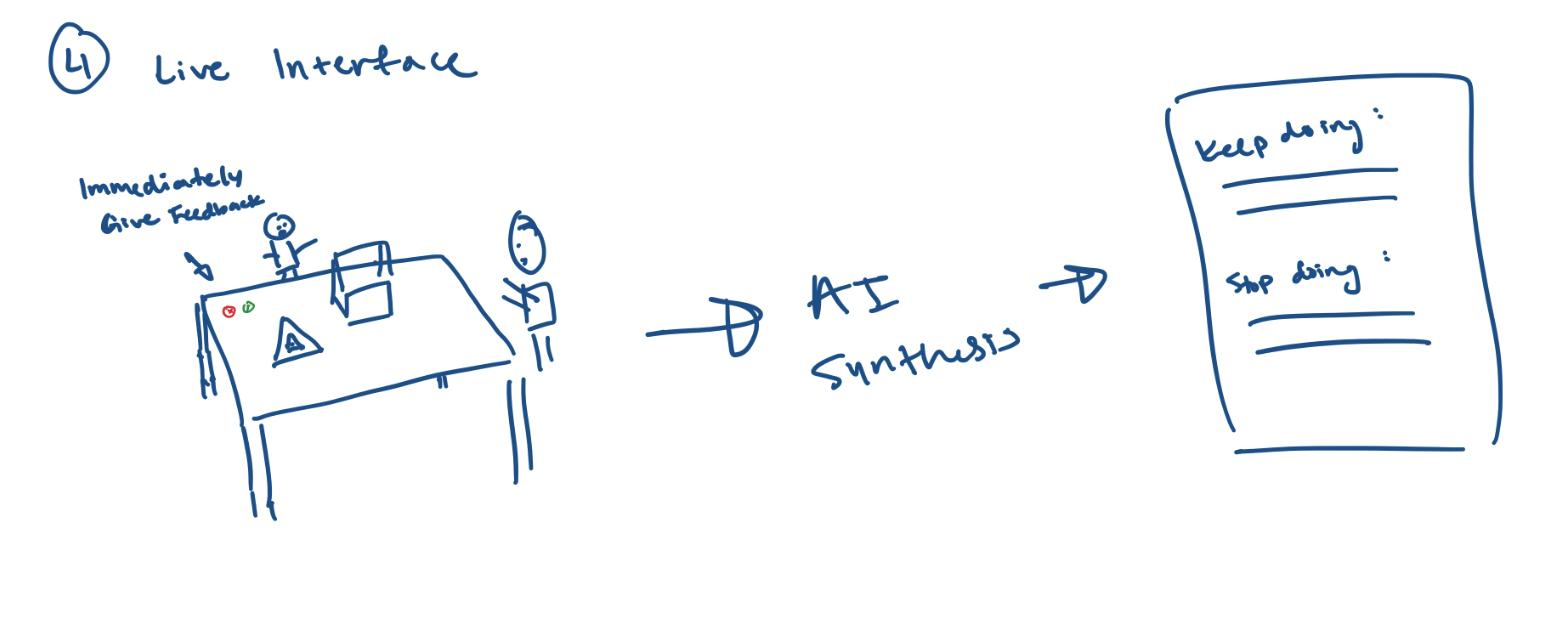 4 Live Interface
Immediately
Give Feedback
A
AI
Synthesis
Keep doing :
Stop doing :